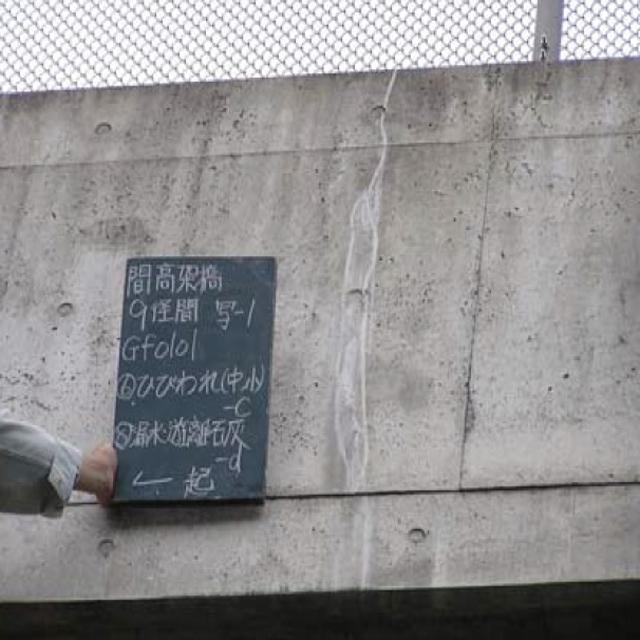 間高架橋
9径間 写-1
GF0101
①ひびわれ(中,小)
-c
②漏水遊離石灰
-d
← 起